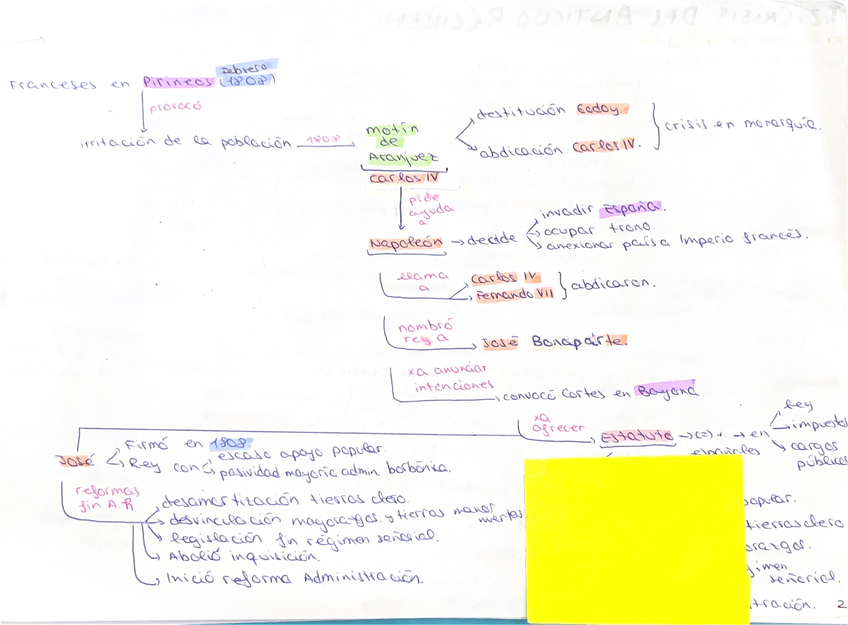 Franceses en Pirineos (Febrero 1808)
provocó
irritación de la población 1808 motín de Aranjuez
destitución Godoy.
abdicación Carlos IV.
crisis en monarquía.
Carlos IV
pide ayuda a
Napoleón → decide
invadir España.
ocupar trono.
anexionar país a Imperio francés.
llama a
Carlos IV
Fernando VII
abdicaron.
nombró rey a
José Bonaparte.
xa anunciar intenciones
convocó Cortes en Bayona
xa ofrecer
Estatuto → (=) + → en
ley
impuestos
cargos públicos
José
Firmó en 1808
Rey con
escaso apoyo popular.
pasividad mayoría admin borbónica.
reformas fin A.R
desamortización tierras clero.
desvinculación mayorazgos y tierras manos muertas.
legislación fin régimen señorial.
Abolió inquisición.
Inició reforma Administración.
opular.
tierras clero
orazgos.
gimen señorial.
tración. 2